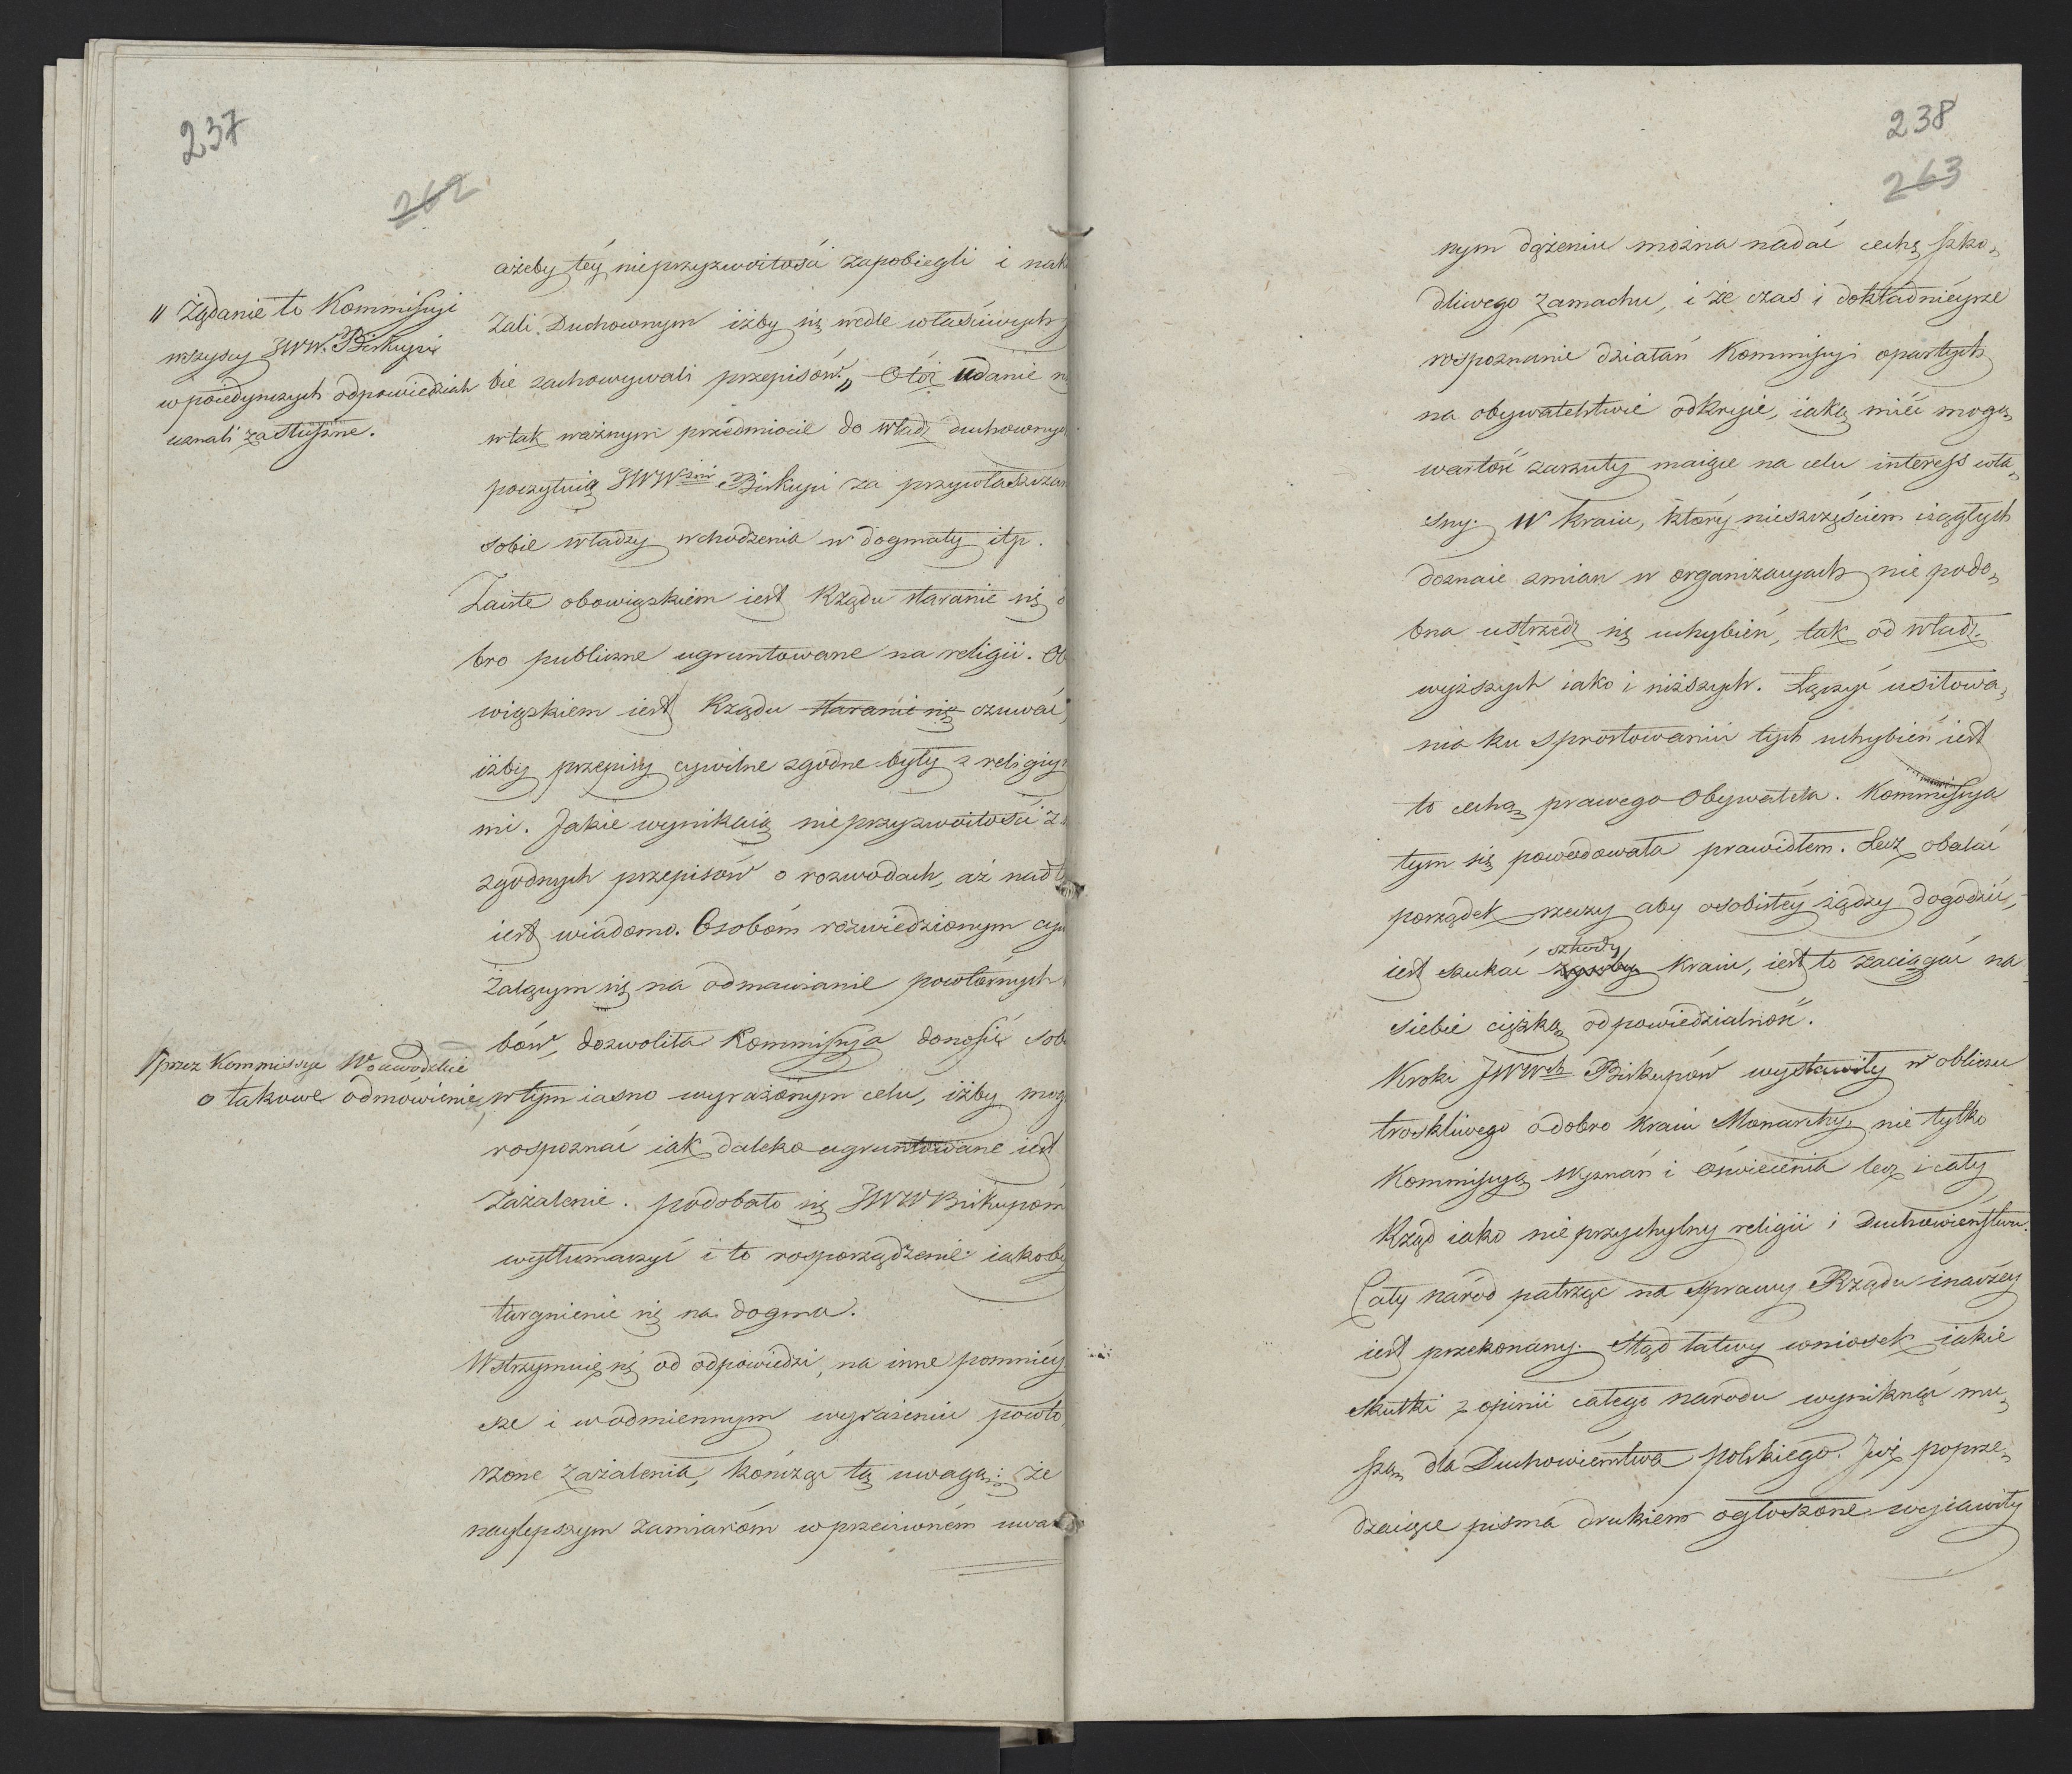 237
262
ażeby téj nieprzyzwoitości zapobiegli i naka
zali Duchownym iżby się wedle właściwych
bie zachowywali przepisów. „ Otóż udanie
w tak ważnym przedmiocie do władz duchownych
poczytuią JWWni Biskupi za przywłaszczan
sobie władzy wchodzenia w dogmaty itp.
Zaiste obowiązkiem iest Rządu staranie się
bro publiczne ugruntowane na religii. Ob
wiązkiem iest Rządu staranie się czuwać,
iżby przepisy cywilne zgodne były z religiy
mi. Jakie wynikaią nieprzyzwoitości z
zgodnych przepisów o rozwodach, aż nadt
iest wiadomo. Osobóm rozwiedzionym cy
żalącym się na odmawianie powtórnych
bów, dozwoliła Kommissya donosić sob
w tym iasno wyrażonym celu, iżby mog
rospoznać iak daleko ugruntowane iest
zażalenie. podobało się JWW Biskupom
wytłumaczyć i to rosporządzenie iakoby
targnienie się na dogma.
Wstrzymuię się od odpowiedzi, na inne pomniéy
sze i w odmiennym wyrażeniu powto
rzone zażalenia, kończąc tą uwagą; że
naylepszym zamiaróm w przeciwném uwa
„ Żądanie to Kommissyi
wszyscy JWW. Biskupi
w poiedynczych odpowiedziach
uznali za słuszne.
przez Kommissye Woiewódzkie
o takowe odmówienie
238
263
nym dążeniu można nadać cechę szko„
dliwego zamachu, i że czas i dokładnieysze
rospoznanie działań Kommissyi opartych
na obywatelstwie odkryie, iaką mieć mogą
wartość zarzuty maiące na celu interess wła„
sny. W kraiu, który nieszczęściem ciągłych
doznaie zmian w organizacyach niepodo„
bna ustrzedz się uchybień, tak od władz
wyższych iako i niższych. Łączyć usiłowa„
nia ku sprostowaniu tych uchybień iest
to cechą prawego Obywatela. Kommissya
tym się powodowała prawidłem. Lecz obalać
porządek rzeczy aby osobistéy żądzy dogodzić,
iest szukać szkody kraiu, iest to zaciągać na
siebie ciężką odpowiedzialność.
Kroki JWWch Biskupów wystawiły w obliczu
troskliwego o dobro kraiu Monarchy, nie tylko
Kommissyą Wyznań i Oświecenia lecz i cały
Rząd iako nieprzychylny religii i Duchowieństwu.
Cały naród patrząc na sprawy Rządu inaczey
iest przekonany. Ztąd łatwy wniosek iakie
skutki z opinii całego narodu wyniknąć mu„
szą dla Duchowieństwa polskiego. Już poprze„
dzaiące pisma drukiem ogłoszone wyiawiły